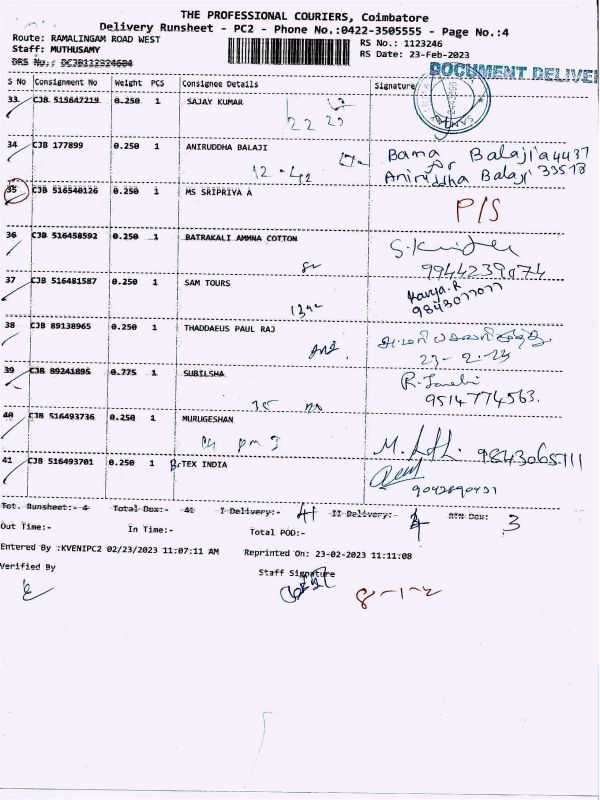 THE PROFESSIONAL COURIERS, Coimbatore
Delivery Runsheet - PC2 - Phone No.:0422-3505555 - Page No.:4
Route: RAMALINGAM ROAD WEST
RS No.: 1123246
Staff: MUTHUSAMY
RS Date: 23-Feb-2023
DOCUMENT DELIVER
S No Consignment No Weight PCS Consignee Details Signature
33 CJB 515647219 0.250 1 SAJAY KUMAR
34 CJB 177899 0.250 1 ANIRUDDHA BALAJI
Bama for Balaji
Aniruddha Balaji 33578
35 CJB 516540126 0.250 1 MS SRIPRIYA A
P/S
36 CJB 516458592 0.250 1 BATRAKALI AMMNA COTTON
37 CJB 516481587 0.250 1 SAM TOURS
Kavya.R
9843077077
38 CJB 89138965 0.250 1 THADDAEUS PAUL RAJ
23-2-23
39 CJB 89241895 0.775 1 SUBILSHA
9514774563.
40 CJB 516493736 0.250 1 MURUGESHAN
9843065111
41 CJB 516493701 0.250 1 TEX INDIA
Tot. Runsheet:- 4 Total Dox:- 41 I Delivery:- 41 II Delivery:- RTN Dox: 3
Out Time:- In Time:- Total POD:-
Entered By :KVENIPC2 02/23/2023 11:07:11 AM Reprinted On: 23-02-2023 11:11:08
Verified By Staff Signature